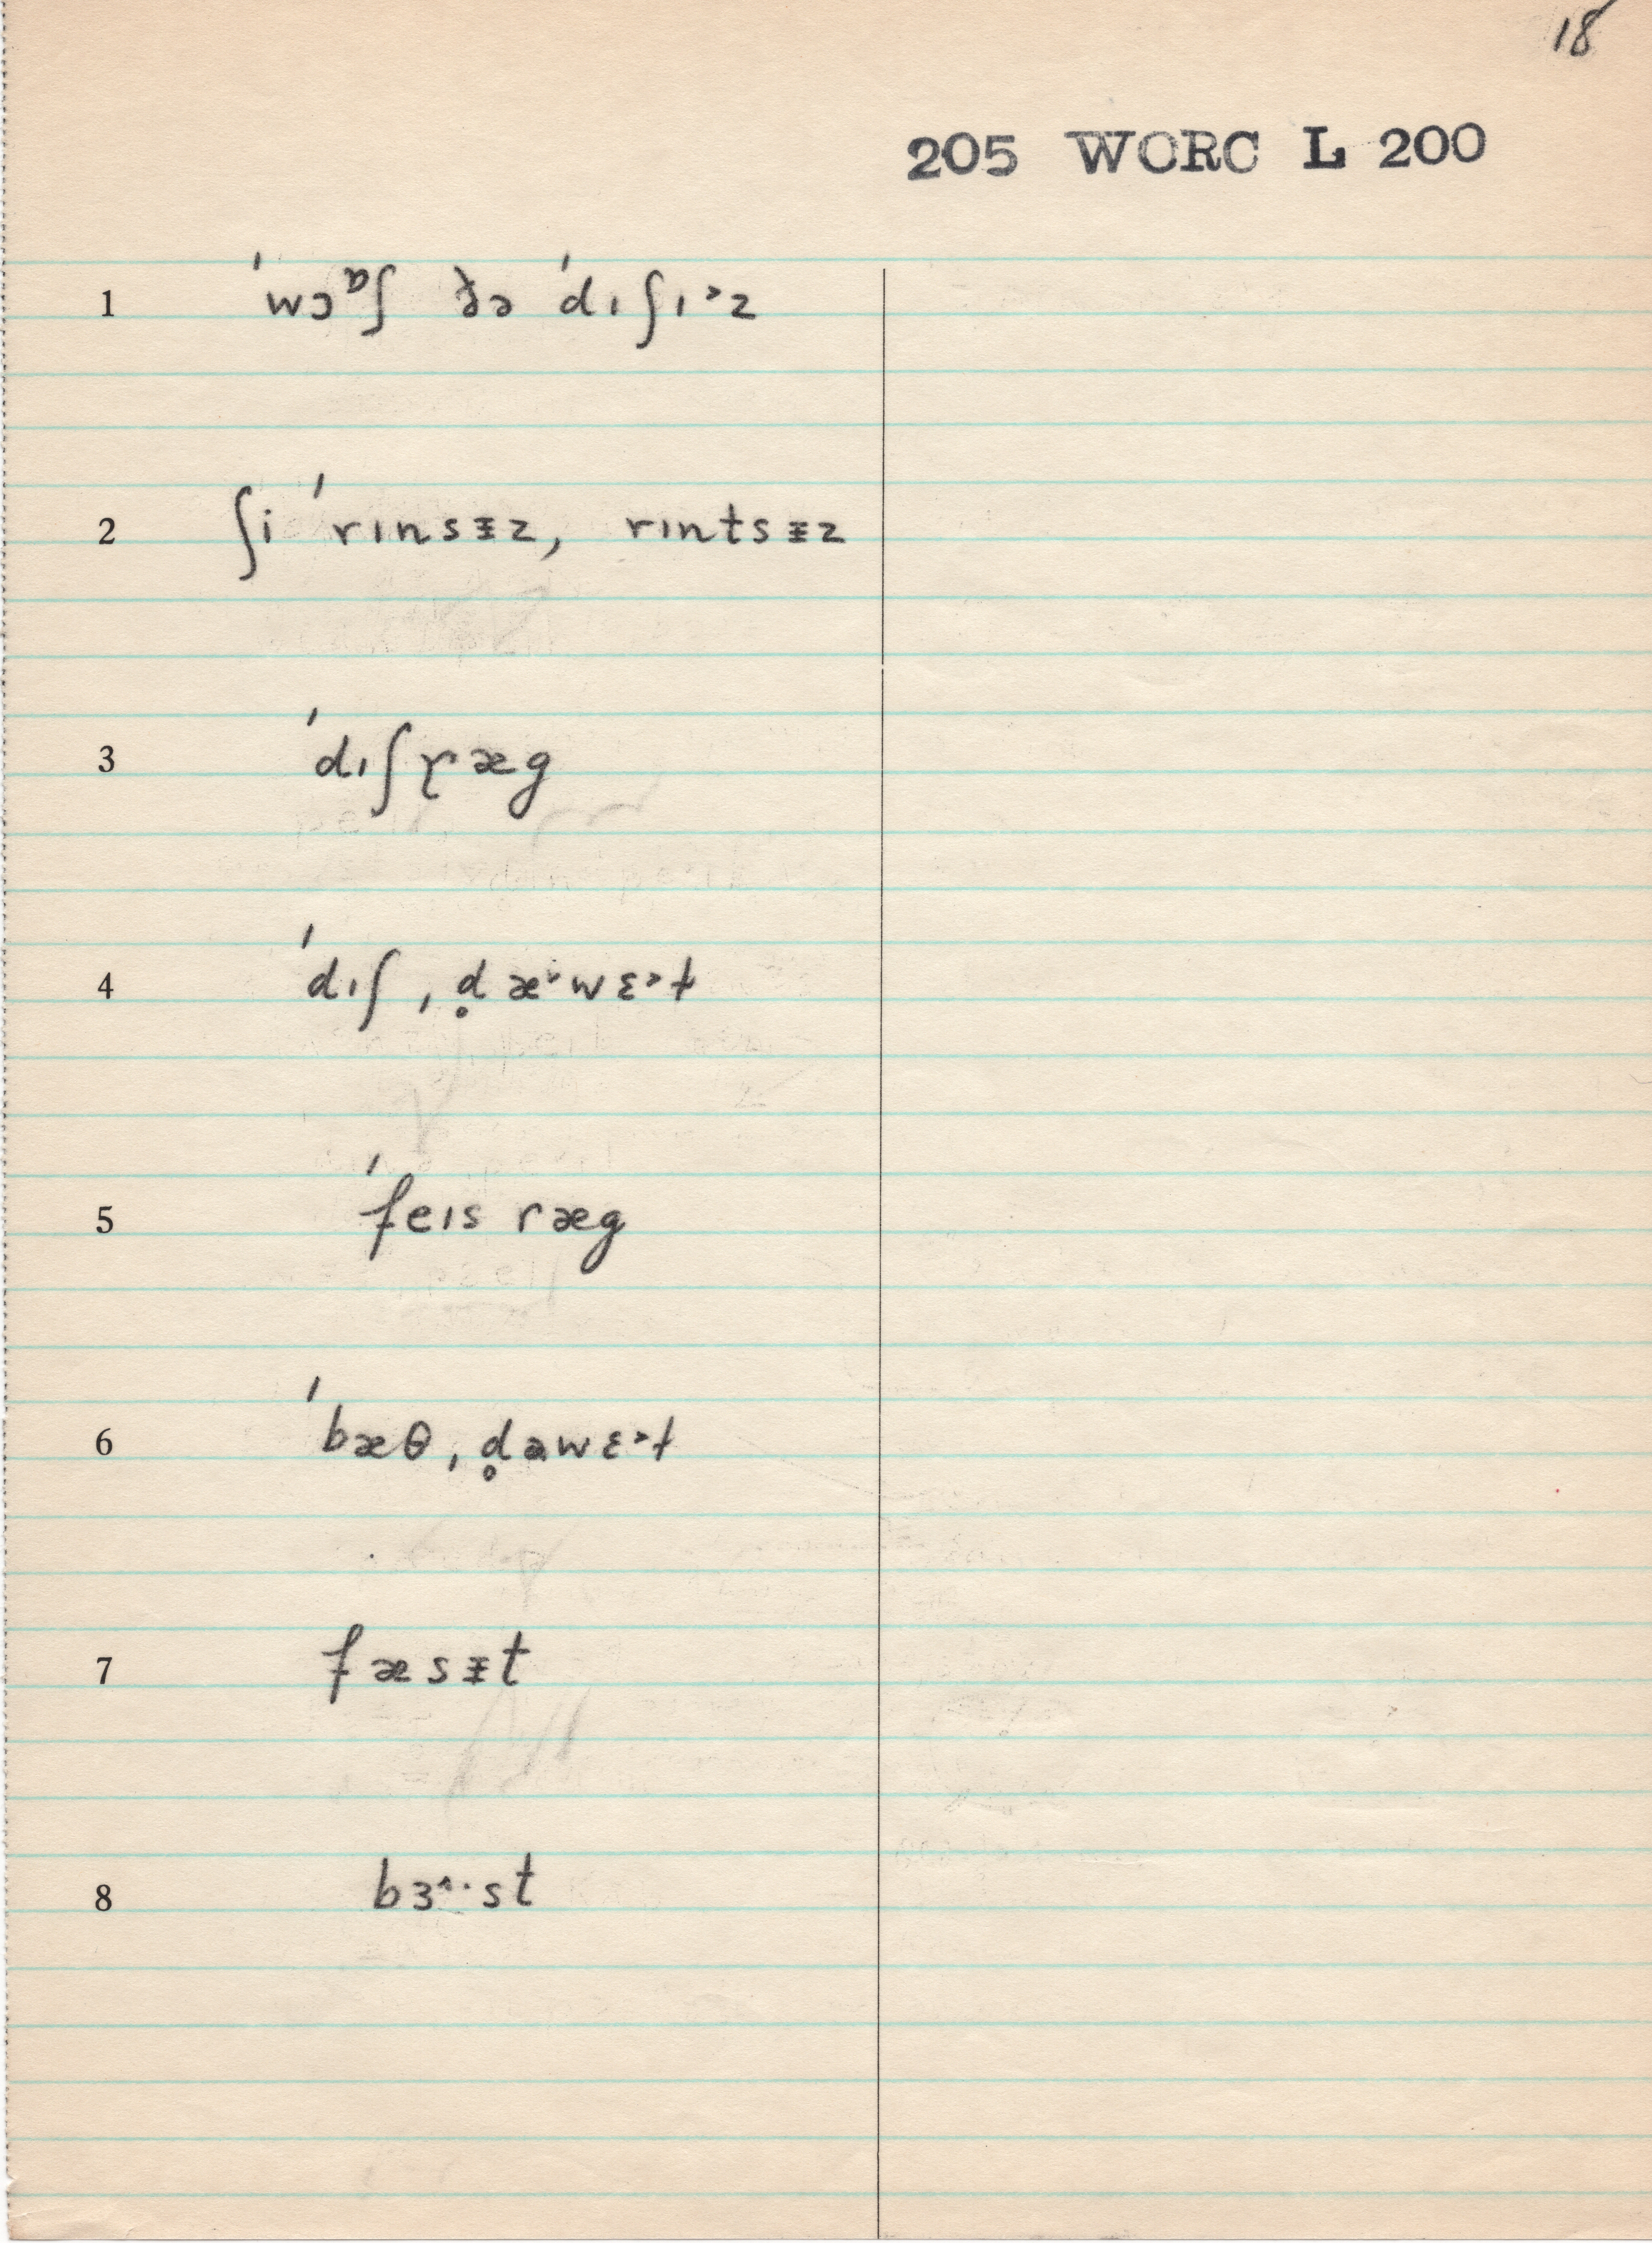 18
205 WORC L 200
1 ˈwɔᶛʃ ðə ˈdɪʃɪ˃z
2 ʃi ˈrɪnsᵻz, rɪntsᵻz
3 ˈdɪʃɽæg
4 ˈdɪʃˌd̥æ˅wɛ˃t
5 ˈfeɪs ræg
6 ˈbæθˌd̥awɛ˃t
7 fæsᵻt
8 bɜ˄·st